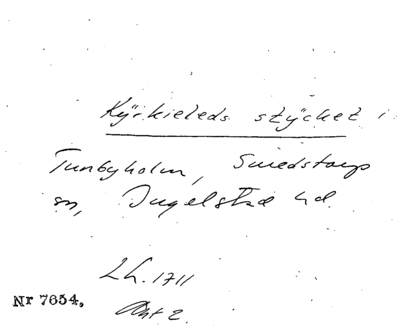 Kÿrkieleds stÿcket i
Tunbyholm, Smedstorps
sn, Ingelstad hd.
Lh. 1711
Akt 2.
Nr 7654.